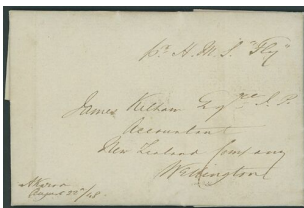 pr H. M. S. "Fly"
James Kelham Esqre J. P.
Accountant
New Zealand Company
Wellington
Akaroa
August 22d/48.